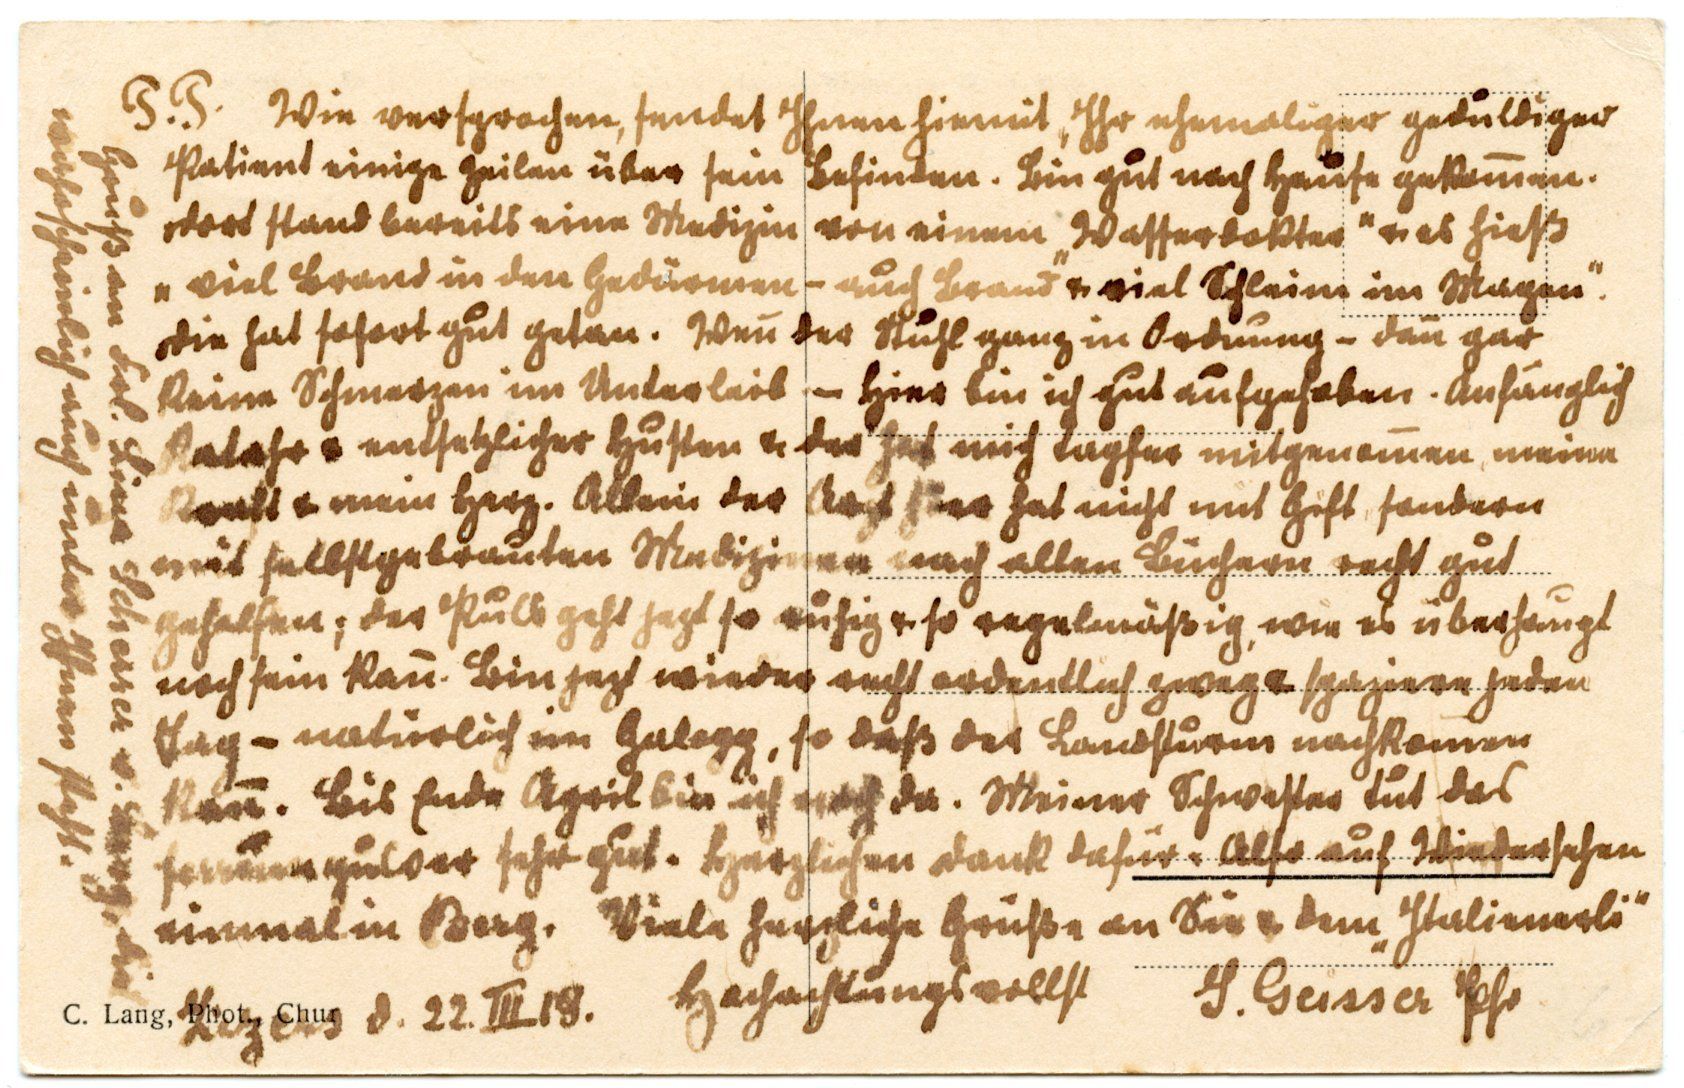 P.P. Wie versprochen, sendet Ihnen hiemit „Ihr ehemaliger geduldiger
Patient einige Zeilen über sein Befinden. Bin gut nach Hause gekom̄en.
dort stand bereits eine Medizin von einem „Wasserdokter" & es hieß
„viel Brand in den Gedärmen – auch Brand" & viel Schleim im Magen".
die hat sofort gut getan. Wen̄ der Stuhl ganz in Ordnung – dan̄ gar
keine Schmerzen im Unterleib – Hier bin ich gut aufgehoben. Anfänglich
Katahr & entsetzlicher Husten & der hat mich tapfer mitgenom̄en, meine
Kraft & mein Herz. Allein der Arzt hier hat nicht mit Gift, sondern
mit selbstgebrauten Medizinen nach alten Büchern recht gut
geholfen; der Puls geht jezt so ruhig & so regelmäßig, wie es überhaupt
noch sein kan̄. Bin jezt wieder recht ordentlich zweg & spaziere jeden
Tag – natürlich im Galopp, so daß der Landsturm nachkomen
kan̄. Bis Ende April bin ich noch da. Meiner Schwester tut das
pulver sehr gut. Herzlichen dank dafür. Also auf Wiedersehen
einmal in Berg. Viele herzliche Grüße an Sie & dem „Italienerli"
Hochachtungsvollst J. Geisser Pfr
d. 22. III 18.
Gruß an Frl. Lina Scherrer v. Berg, die
wahrscheinlich auch unter Ihnen steht.
C. Lang, Phot., Chur